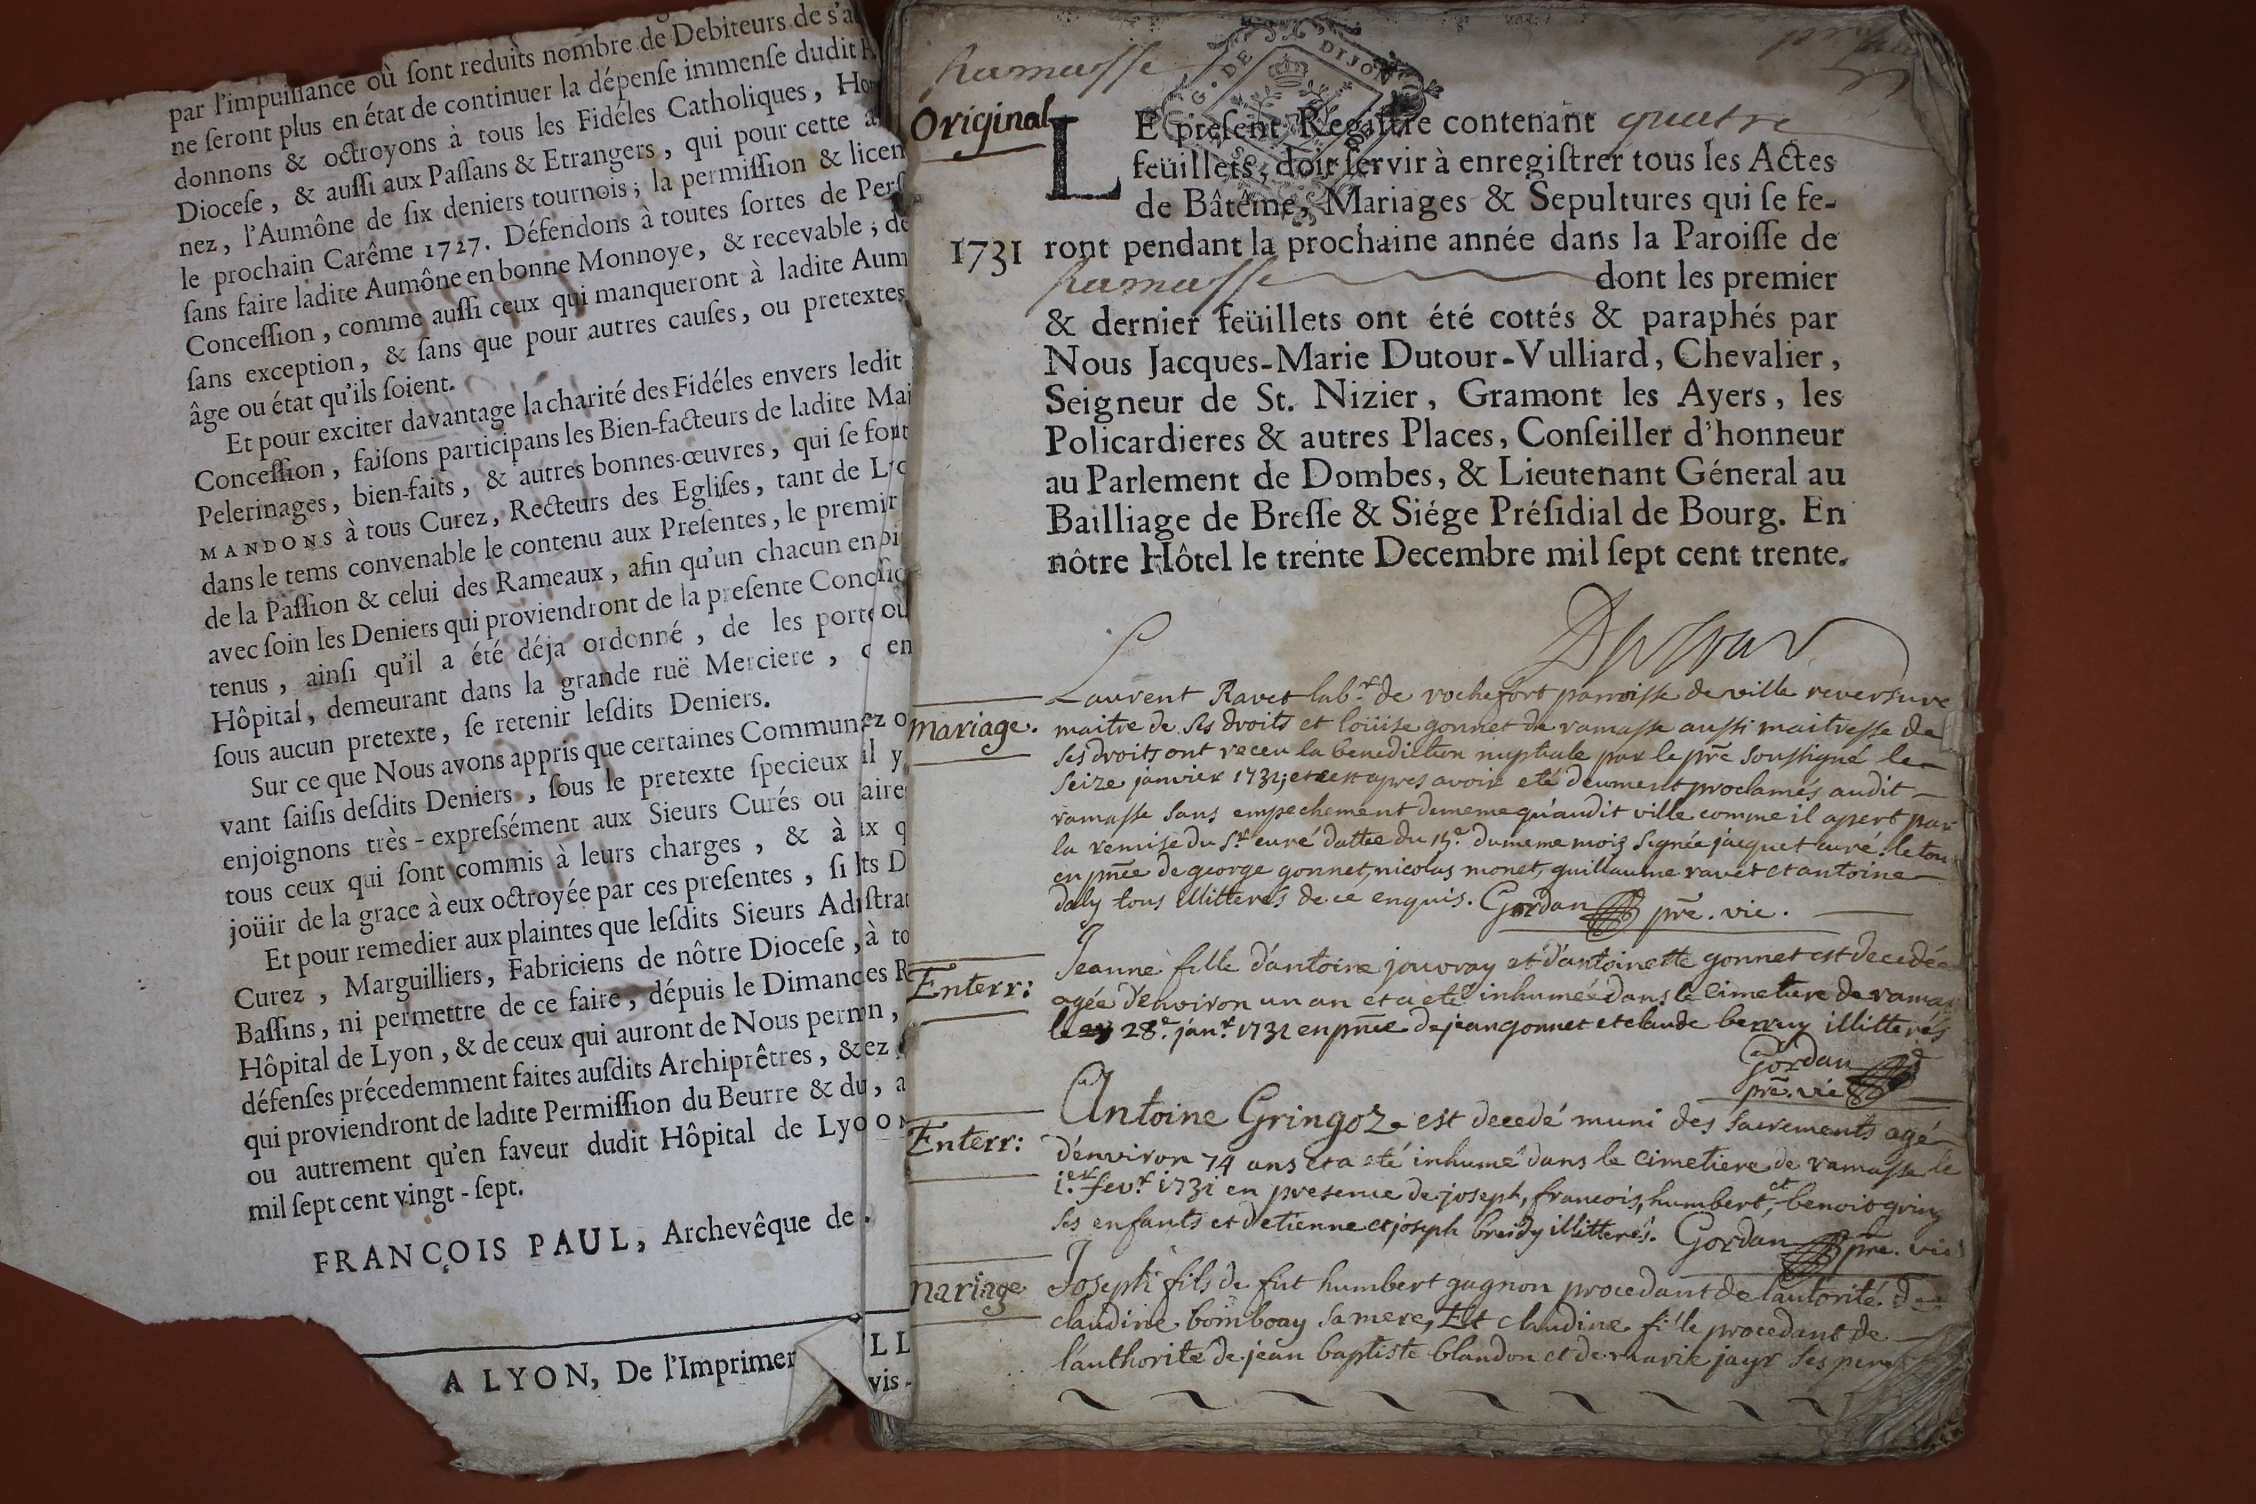 par l'impuissance où sont reduits nombre de Debiteurs de s'a
ne seront plus en état de continuer la dépense immense dudit H
donnons & octroyons à tous les Fidéles Catholiques, Ho
Diocese, & aussi aux Passans & Etrangers, qui pour cette
nez, l'Aumône de six deniers tournois; la permission & licen
le prochain Carême 1727. Défendons à toutes sortes de Pers
sans faire ladite Aumône en bonne Monnoye, & recevable; de
Concession, comme aussi ceux qui manqueront à ladite Aum
sans exception, & sans que pour autres causes, ou pretextes
âge ou état qu'ils soient.
Et pour exciter davantage la charité des Fidéles envers ledit
Concession, faisons participans les Bien-facteurs de ladite Mai
Pelerinages, bien-faits, & autres bonnes-œuvres, qui se font
MANDONS à tous Curez, Recteurs des Eglises, tant de Lyo
dans le tems convenable le contenu aux Presentes, le premir
de la Passion & celui des Rameaux, afin qu'un chacun en
avec soin les Deniers qui proviendront de la presente Conc
tenus, ainsi qu'il a été déja ordonné, de les porte ou
Hôpital, demeurant dans la grande ruë Merciere, en
sous aucun pretexte, se retenir lesdits Deniers.
Sur ce que Nous avons appris que certaines Commun
vant saisis desdits Deniers, sous le pretexte specieux il y
enjoignons très-expressément aux Sieurs Curés ou aire
tous ceux qui sont commis à leurs charges, & à ix q
joüir de la grace à eux octroyée par ces presentes, si
Et pour remedier aux plaintes que lesdits Sieurs Ad
Curez, Marguilliers, Fabriciens de nôtre Diocese, à to
Bassins, ni permettre de ce faire, dépuis le Dimanc
Hôpital de Lyon, & de ceux qui auront de Nous perm
défenses précedemment faites ausdits Archiprêtres, & ez
qui proviendront de ladite Permission du Beurre & du, a
ou autrement qu'en faveur dudit Hôpital de Lyo
mil sept cent vingt-sept.
FRANÇOIS PAUL, Archevêque de
A LYON, De l'Imprimer
LL
vis-
Ramasse
G. DE DIJON
Original
LE present Registre contenant quatre
feüillets, doit servir à enregistrer tous les Actes
de Bâtême, Mariages & Sepultures qui se fe-
1731 ront pendant la prochaine année dans la Paroisse de
Ramasse dont les premier
& dernier feüillets ont été cottés & paraphés par
Nous Jacques-Marie Dutour-Vulliard, Chevalier,
Seigneur de St. Nizier, Gramont les Ayers, les
Policardieres & autres Places, Conseiller d'honneur
au Parlement de Dombes, & Lieutenant Géneral au
Bailliage de Bresse & Siége Présidial de Bourg. En
nôtre Hôtel le trente Decembre mil sept cent trente.
Laurent Ravet labr. de rochefort parroisse de ville reversure
mariage. maitre de ses droits et loüise gonnet de ramasse aussi maitresse de
ses droits ont receu la benediction nuptiale par le pre soussigné le
seize janvier 1731; et c'est apres avoir eté deument proclamés audit
ramasse sans empechement dememe qu'audit ville comme il apert par
la remise du Sr. curé dattée du 15e. du meme mois signée jacquet curé. le tou
en pnce de george gonnet, nicolas monet, guillaume ravet et antoine
daly tous illitterés de ce enquis. Gordan pre. vic.
Jeanne fille d'antoine jouvray et d'antoinette gonnet est decedée
Enterr: agée d'environ un an et a eté inhumée dans le cimetiere de ramas
le 28e. janr. 1731 en pnce de jean gonnet et claude berruy illitterés
Gordan
pre. vic
Antoine Gringoz est decedé muni des sacrements agé
Enterr: d'environ 74 ans et a eté inhumé dans le cimetiere de ramasse le
1er. fevr. 1731 en presence de joseph, francois, humbert, et benoit gring
ses enfants et d'etienne et joseph breidy illitterés. Gordan pre. vic
mariage Joseph fils de fut humbert gagnon procedant de l'autorité de
claudine bomboay sa mere, Et claudine fille procedant de
l'authorité de jean baptiste blandon et de marie jayr ses pere